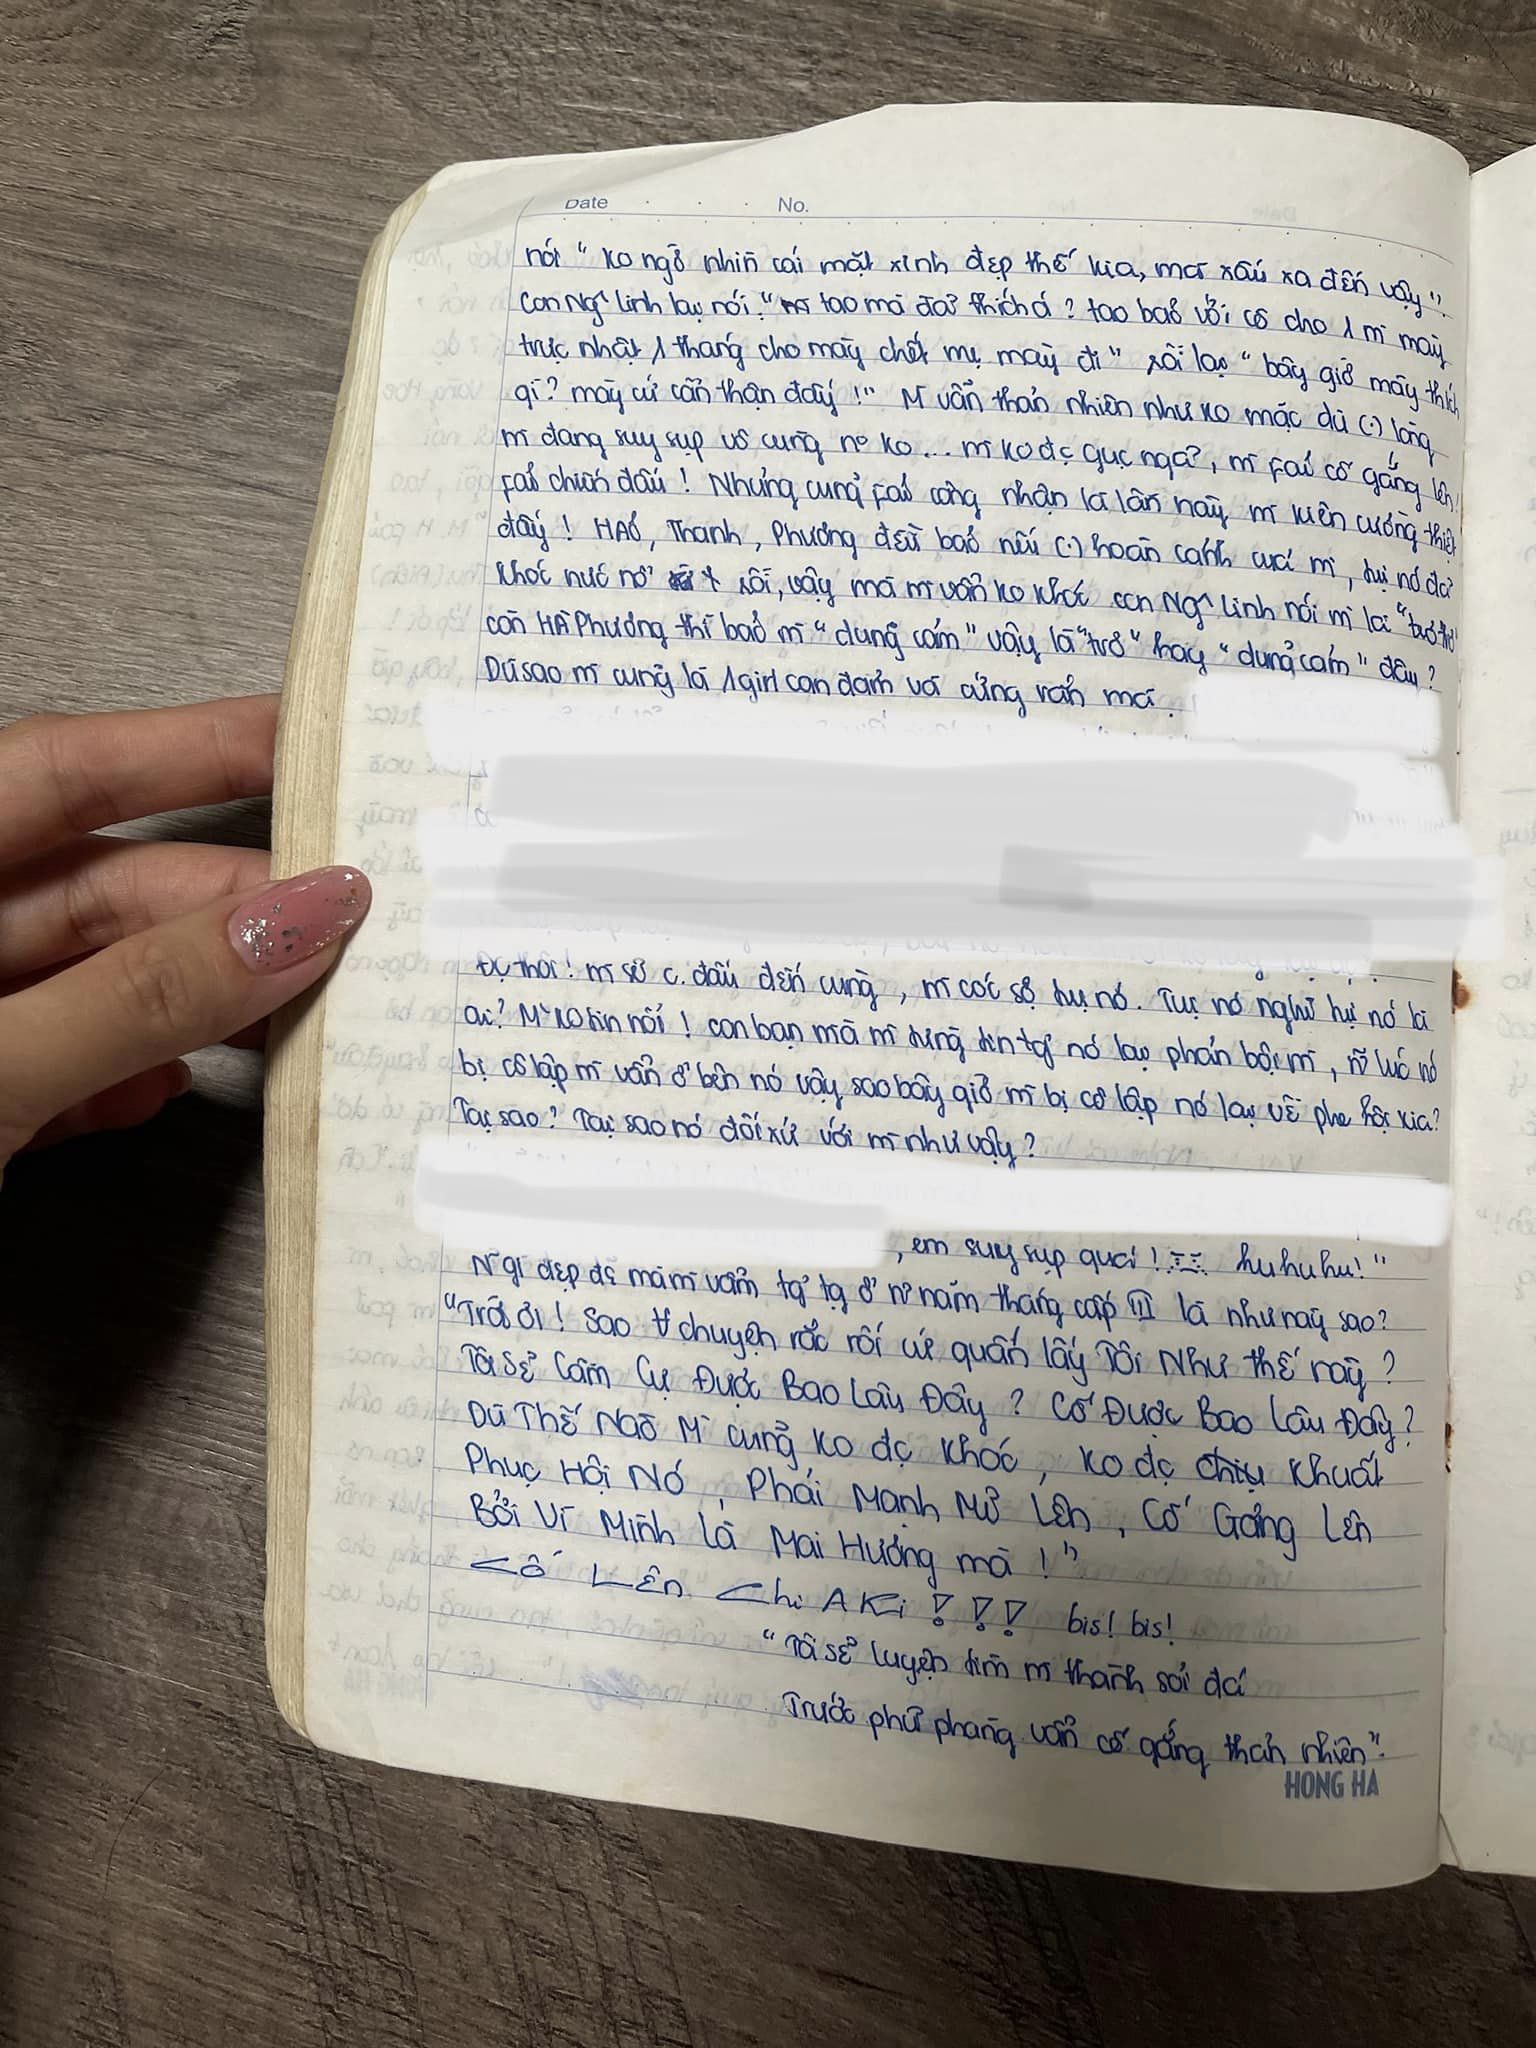 Date No.
nói " ko ngờ nhìn cái mặt xinh đẹp thế kia, mà xấu xa đến vậy".
Con Ngˆ Linh lại nói: " tao mà đã thích á? tao bảo với cô cho 1 mì mày
trực nhật 1 tháng cho mày chết mẹ mày đi" rồi lại " bây giờ mày thích
gì? mày cứ cẩn thận đấy !" M vẫn thản nhiên như ko mặc dù (.) lòng
mì đang suy sụp vô cùng nº ko... mì ko đc gục ngã, mì fải cố gắng lên!
fải chiến đấu! Nhưng cũng fải công nhận là lần này mì kiên cường thiệt
đấy! HẢO, Thanh, Phương đều bảo nếu (.) hoàn cảnh của mì, tụi nó đã
khóc nức nở rồi, vậy mà mì vẫn ko khóc con Ngˆ Linh nói mì là "trơ trẽ"
còn HÀ Phương thì bảo mì "dũng cảm" vậy là "trơ" hay "dũng cảm" đây?
Dù sao mì cũng là 1 girl can đảm và cứng rắn mà.
Đc thôi! mì sẽ c. đấu đến cùng, mì cóc sợ tụi nó. Tụi nó nghĩ tụi nó là
ai? Mˋ ko tin nổi! con bạn mà mì từng tin tg̉ nó lại phản bội mì, n~ lúc nó
bị cô lập mì vẫn ở bên nó vậy sao bây giờ mì bị cô lập nó lại về phe hội kia?
Tại sao? Tại sao nó đối xử với mì như vậy?
, em suy sụp quá! huhuhu!"
N~ gì đẹp đẽ mà mì vẫn tg̉ tg ở n~ năm tháng cấp III là như này sao?
"Trời ơi! Sao ∀ chuyện rắc rối cứ quấn lấy Tôi Như thế này?
Tôi sẽ Cầm Cự Được Bao Lâu Đây? Cố Được Bao Lâu Đây?
Dù Thế Nào Mì cũng ko đc khóc, ko đc chịu khuất
Phục Hội Nó, Phải Mạnh Mẽ Lên, Cố Gắng Lên
Bởi Vì Mình Là Mai Hương mà!"
Cố Lên Chi AKi !!! bis! bis!
"Tôi sẽ luyện tim mì thành sỏi đá
Trước phũ phàng vẫn cố gắng thản nhiên".
HONG HA